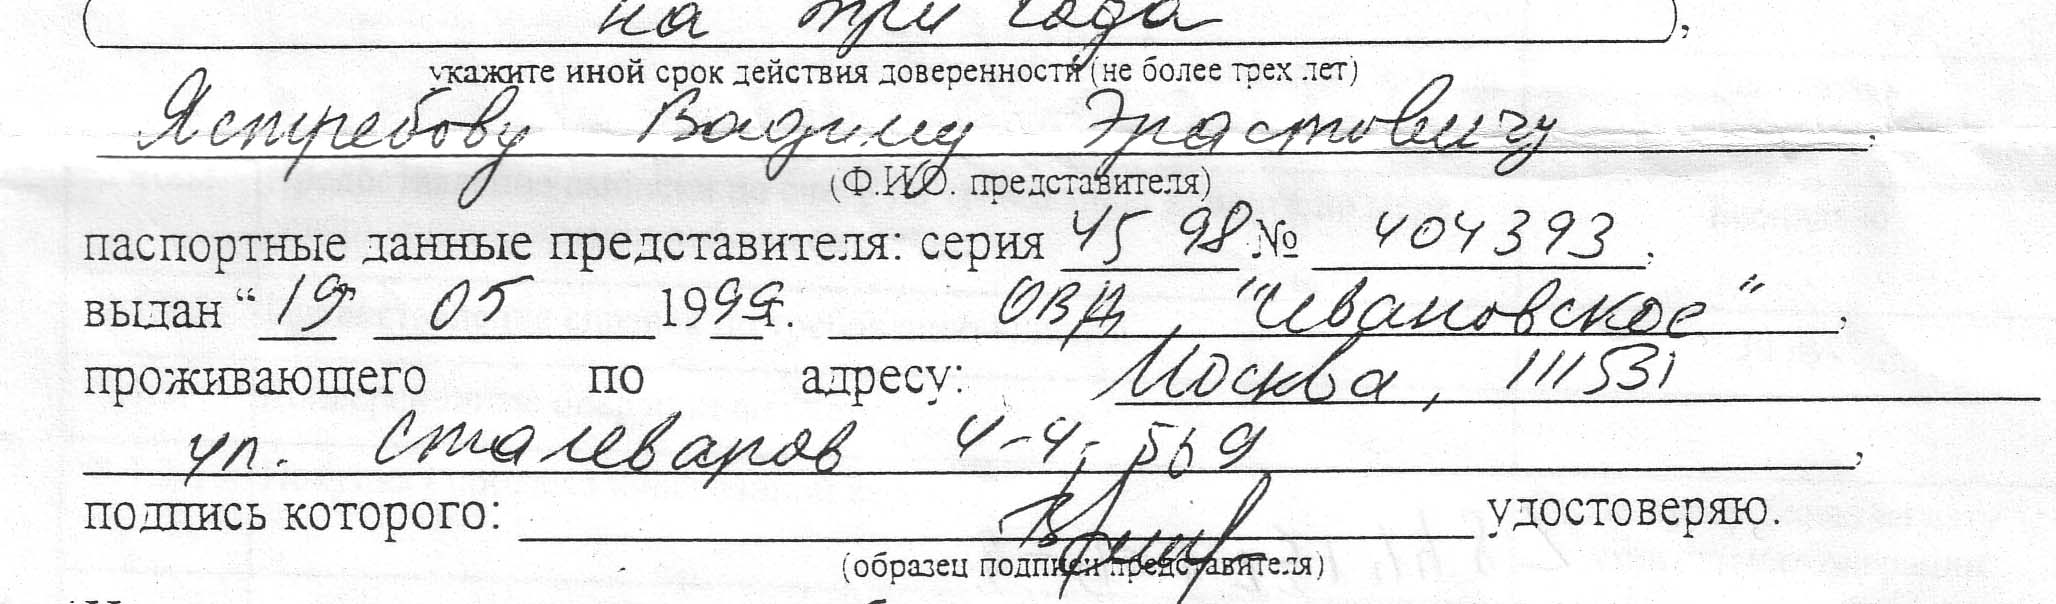 на три года ),
укажите иной срок действия доверенности (не более трех лет)
Ястребову Вадиму Эрастовичу,
(Ф.И.О. представителя)
паспортные данные представителя: серия 45 98 № 404393,
выдан “19 05 1999г. ОВД, "Ивановское",
проживающего по адресу: Москва, 111531
ул. Сталеваров 4-4, 569,
подпись которого: удостоверяю.
(образец подписи представителя)